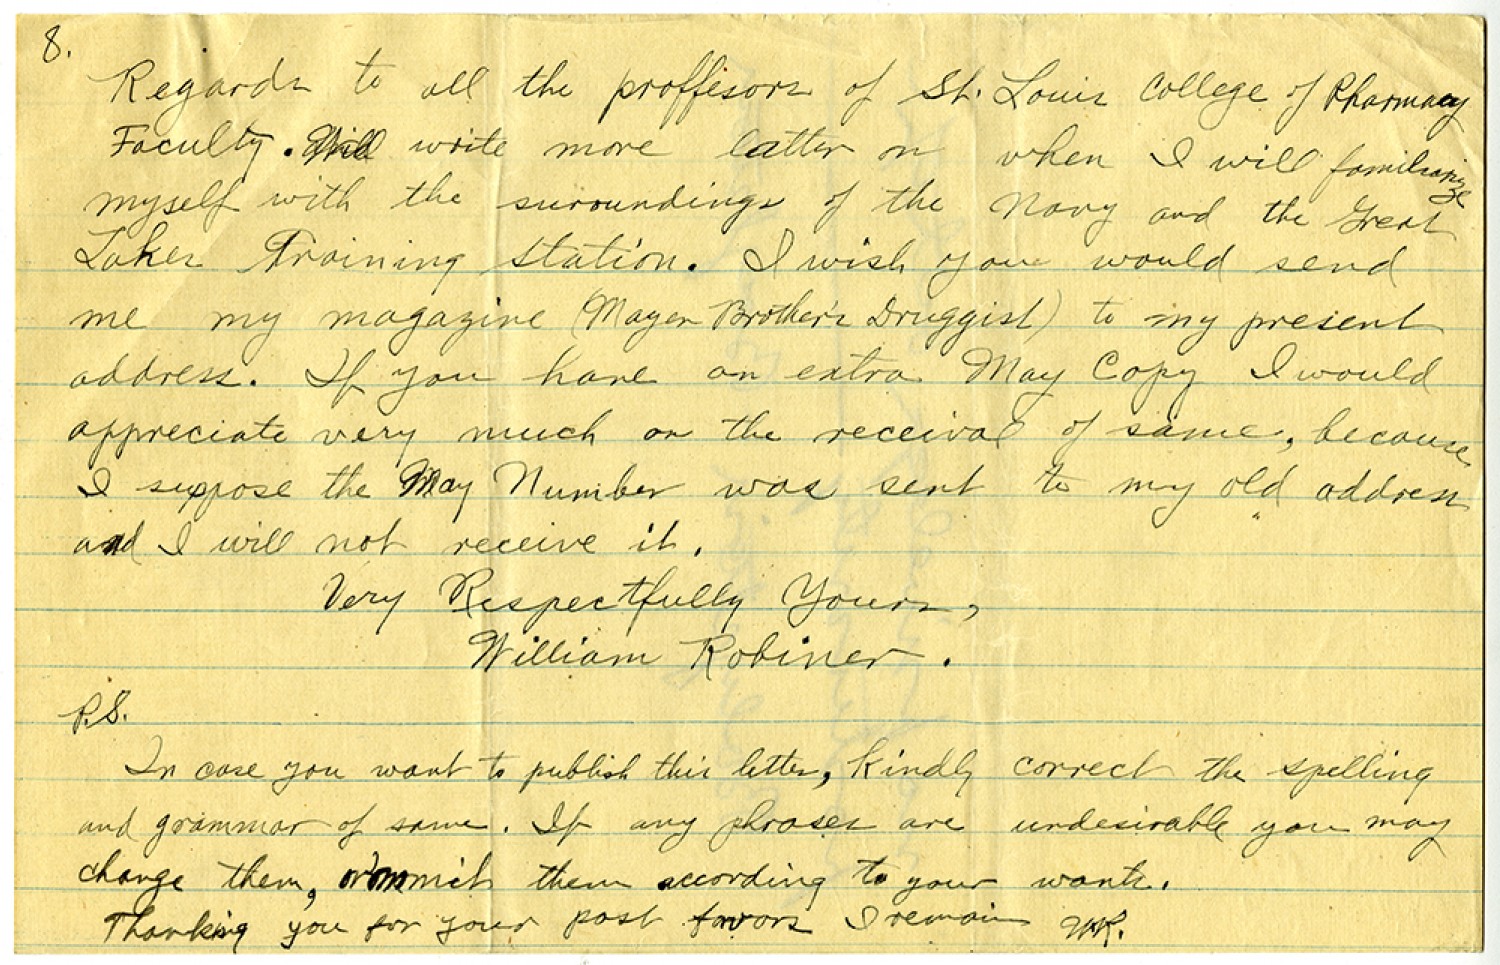 8.
Regards to all the proffesors of St. Louis College of Pharmacy
Faculty. Will write more latter on when I will familiarize
myself with the suroundings of the Navy and the Great
Lakes Training Station. I wish you would send
me my magazine (Mayer Brother's Druggist) to my present
address. If you have an extra May Copy I would
appreciate very much on the receival of same, because
I suppose the May Number was sent to my old address
and I will not receive it.
Very Respectfully Yours,
William Robiner.
P.S.
In case you want to publish this letter, kindly correct the spelling
and grammar of same. If any phrases are undesirable you may
change them, or ommit them according to your wants.
Thanking you for your past favors I remain W.R.